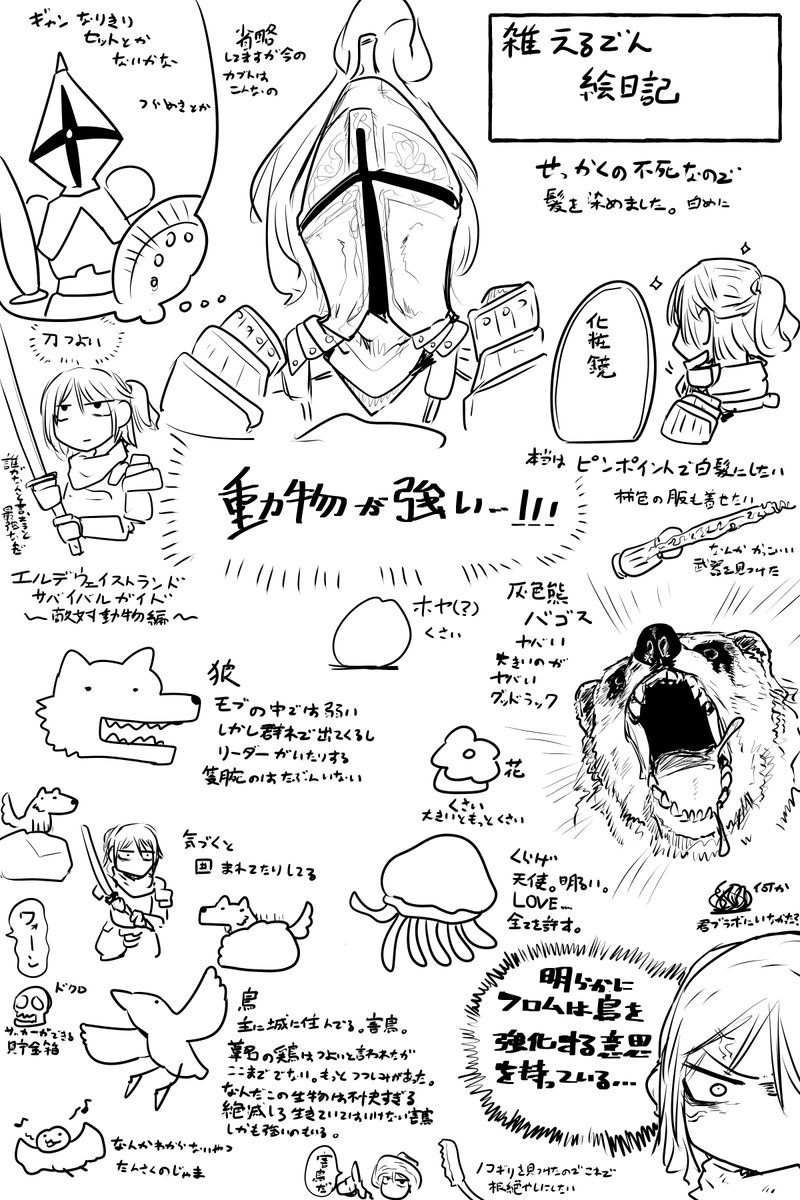 雑えるでん
絵日記
ギャンなりきり
セットとか
ないかな
つらぬきとか
省略
してますが今の
カブトは
こんなの
せっかくの不死なので
髪を染めました。白めに
化粧鏡
本当は ピンポイントで白髪にしたい
柿色の服も着せたい
刀つよい
誰がなんと言おうと
最強なんだ
動物が強い…!!!
なんかカッコいい
武器を見つけた
エルデウェイストランド
サバイバルガイド
～敵対動物編～
ホヤ(?)
くさい
灰色熊
バゴス
ヤバい
大きいのが
ヤバい
グッドラック
狼
モブの中では弱い
しかし群れで出てくるし
リーダーがいたりする
隻腕のはたぶんいない
花
くさい
大きいともっとくさい
気づくと
囲まれてたりしてる
ワォーン
くらげ
天使。明るい。
LOVE…
全てを許す。
何か
君ブラボにいなかた?
ドクロ
サッカーができる
貯金箱
鳥
主に城に住んでる。害鳥。
葦名の鶏はつよいと言われたが
ここまででない。もっとつつしみがあった。
なんだこの生物は不丈夫すぎる
絶滅しろ生きていてはいけない害鳥
しかも強いのもいる。
明らかに
フロムは鳥を
強化する意思
を持っている…
なんかわからないやつ
たんさくのじゃま
害鳥だ
ノコギリを見つけたのでこれで
根絶やしにしたい